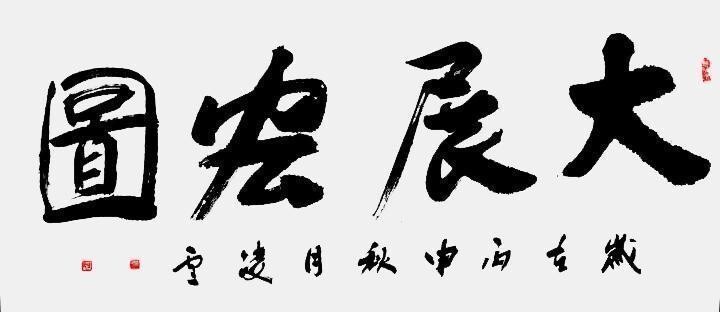 大展宏圖
歲在丙申秋月凌雪